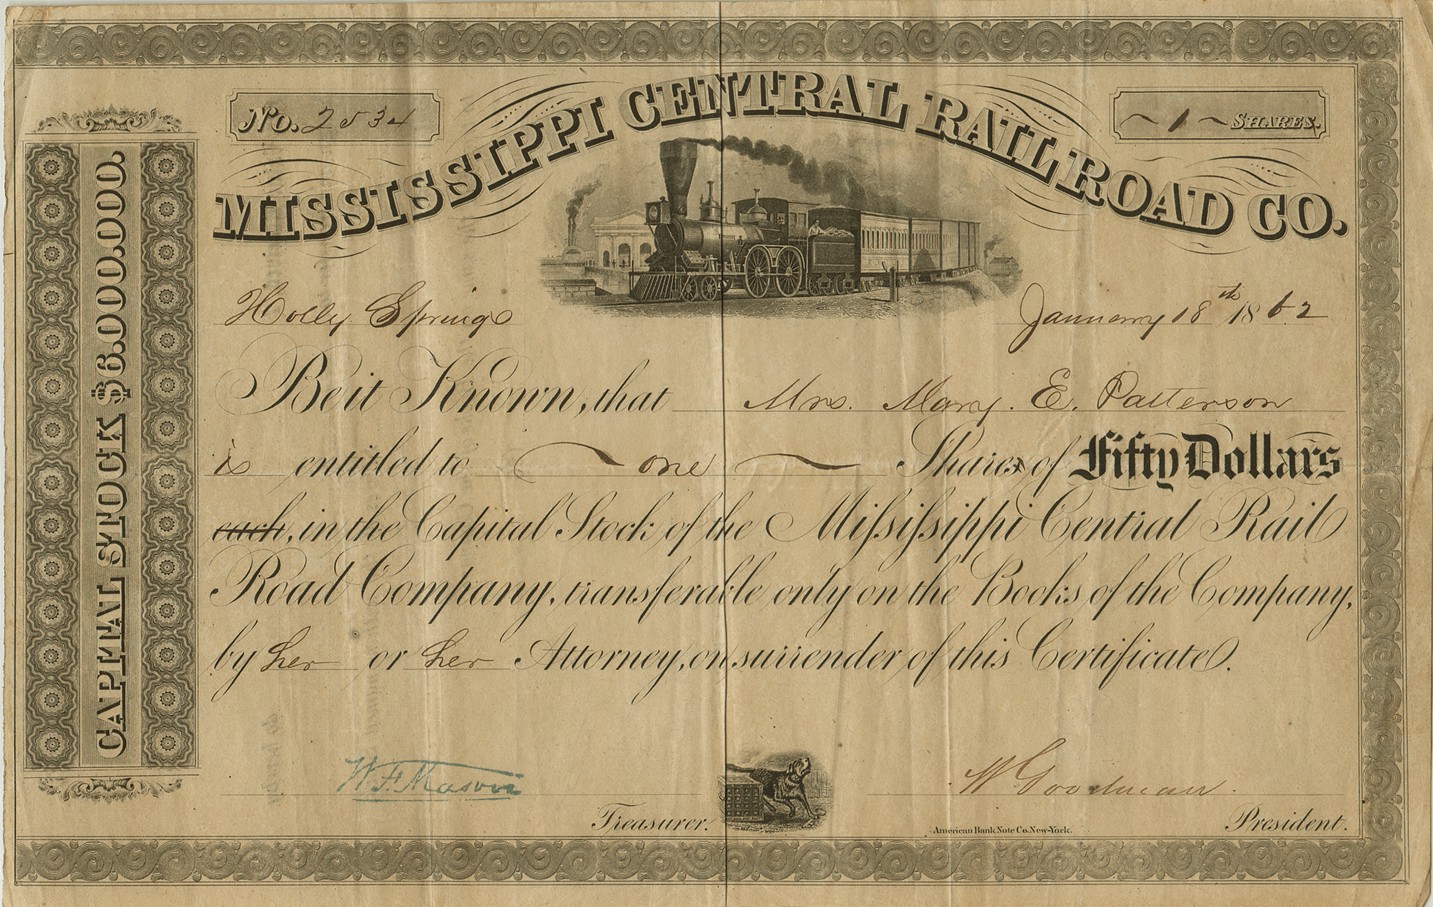 No. 2534
~ 1 ~ SHARES.
MISSISSIPPI CENTRAL RAIL ROAD CO.
CAPITAL STOCK $6.000.000.
Holly Springs January 18th 1862
Be it Known, that Mrs. Mary. E. Patterson
is entitled to one Shares of Fifty Dollars
each, in the Capital Stock of the Mississippi Central Rail
Road Company, transferable only on the Books of the Company,
by her or her Attorney, on surrender of this Certificate.
W. F. Mason W Goodman
Treasurer. American Bank Note Co. New-York. President.